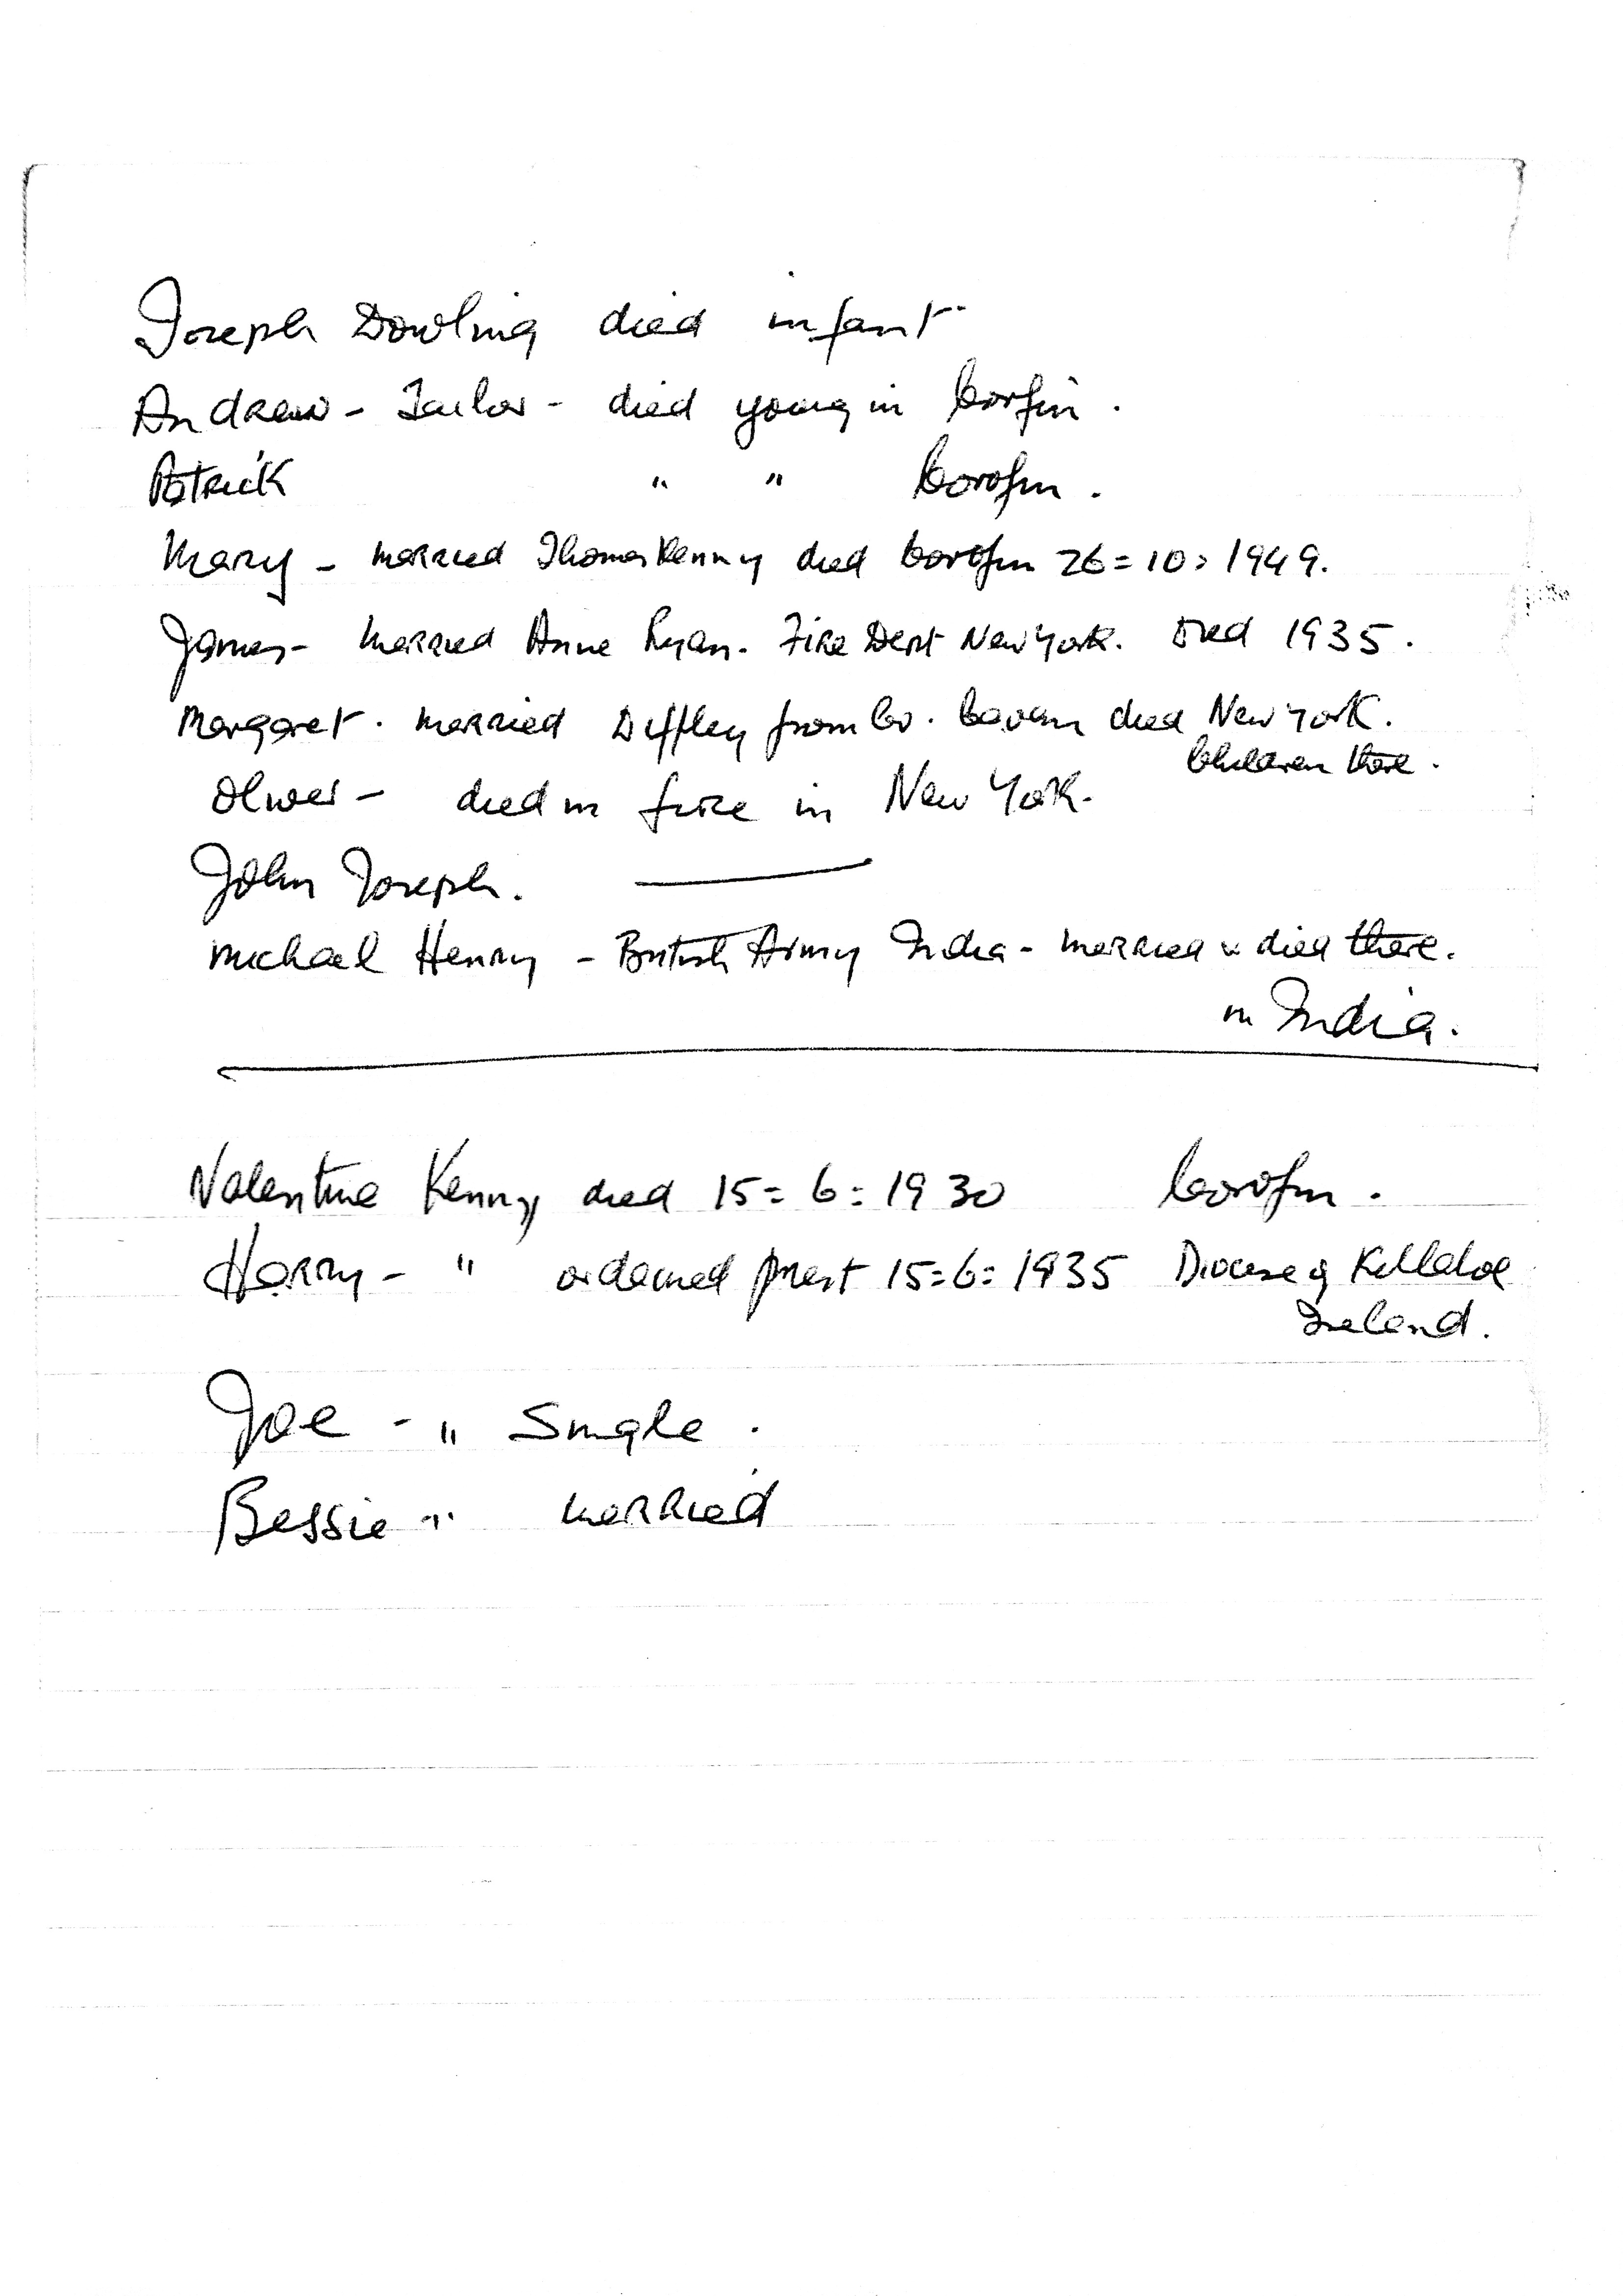 Joseph Dowling died infant
Andrew - Tailor - died young in Corfin.
Patrick " " Corofin.
Mary - married Thomas Kenny died Corofin 26=10=1949.
James - married Anne Ryan. Fire Dept New York. Died 1935.
Margaret. married Diffley from Co. Cavan died New York.
Children there.
Oliver - died in fire in New York.
John Joseph. ———
Michael Henry - British Army India - married & died there.
in India.
Valentine Kenny died 15=6=1930 Corofin.
Harry - " ordained priest 15=6=1935 Diocese of Killaloe
Ireland.
Joe - " Single.
Bessie " married